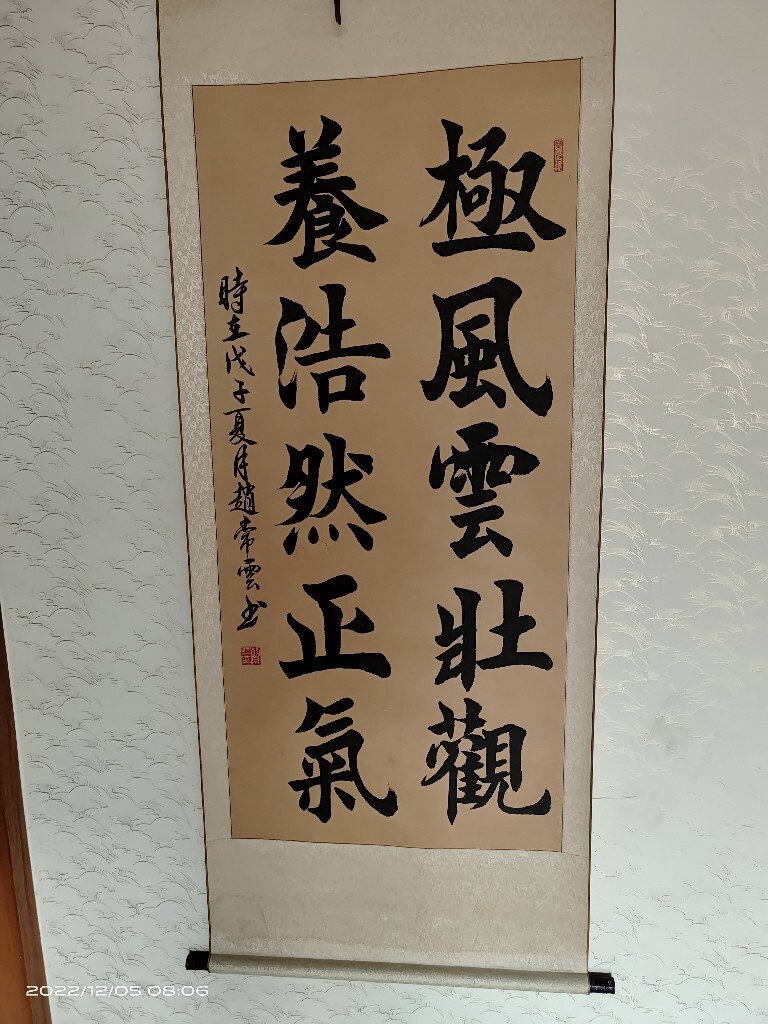 極風雲壯觀
養浩然正氣
時在戊子夏月趙常雲书
2022/12/05 08:06